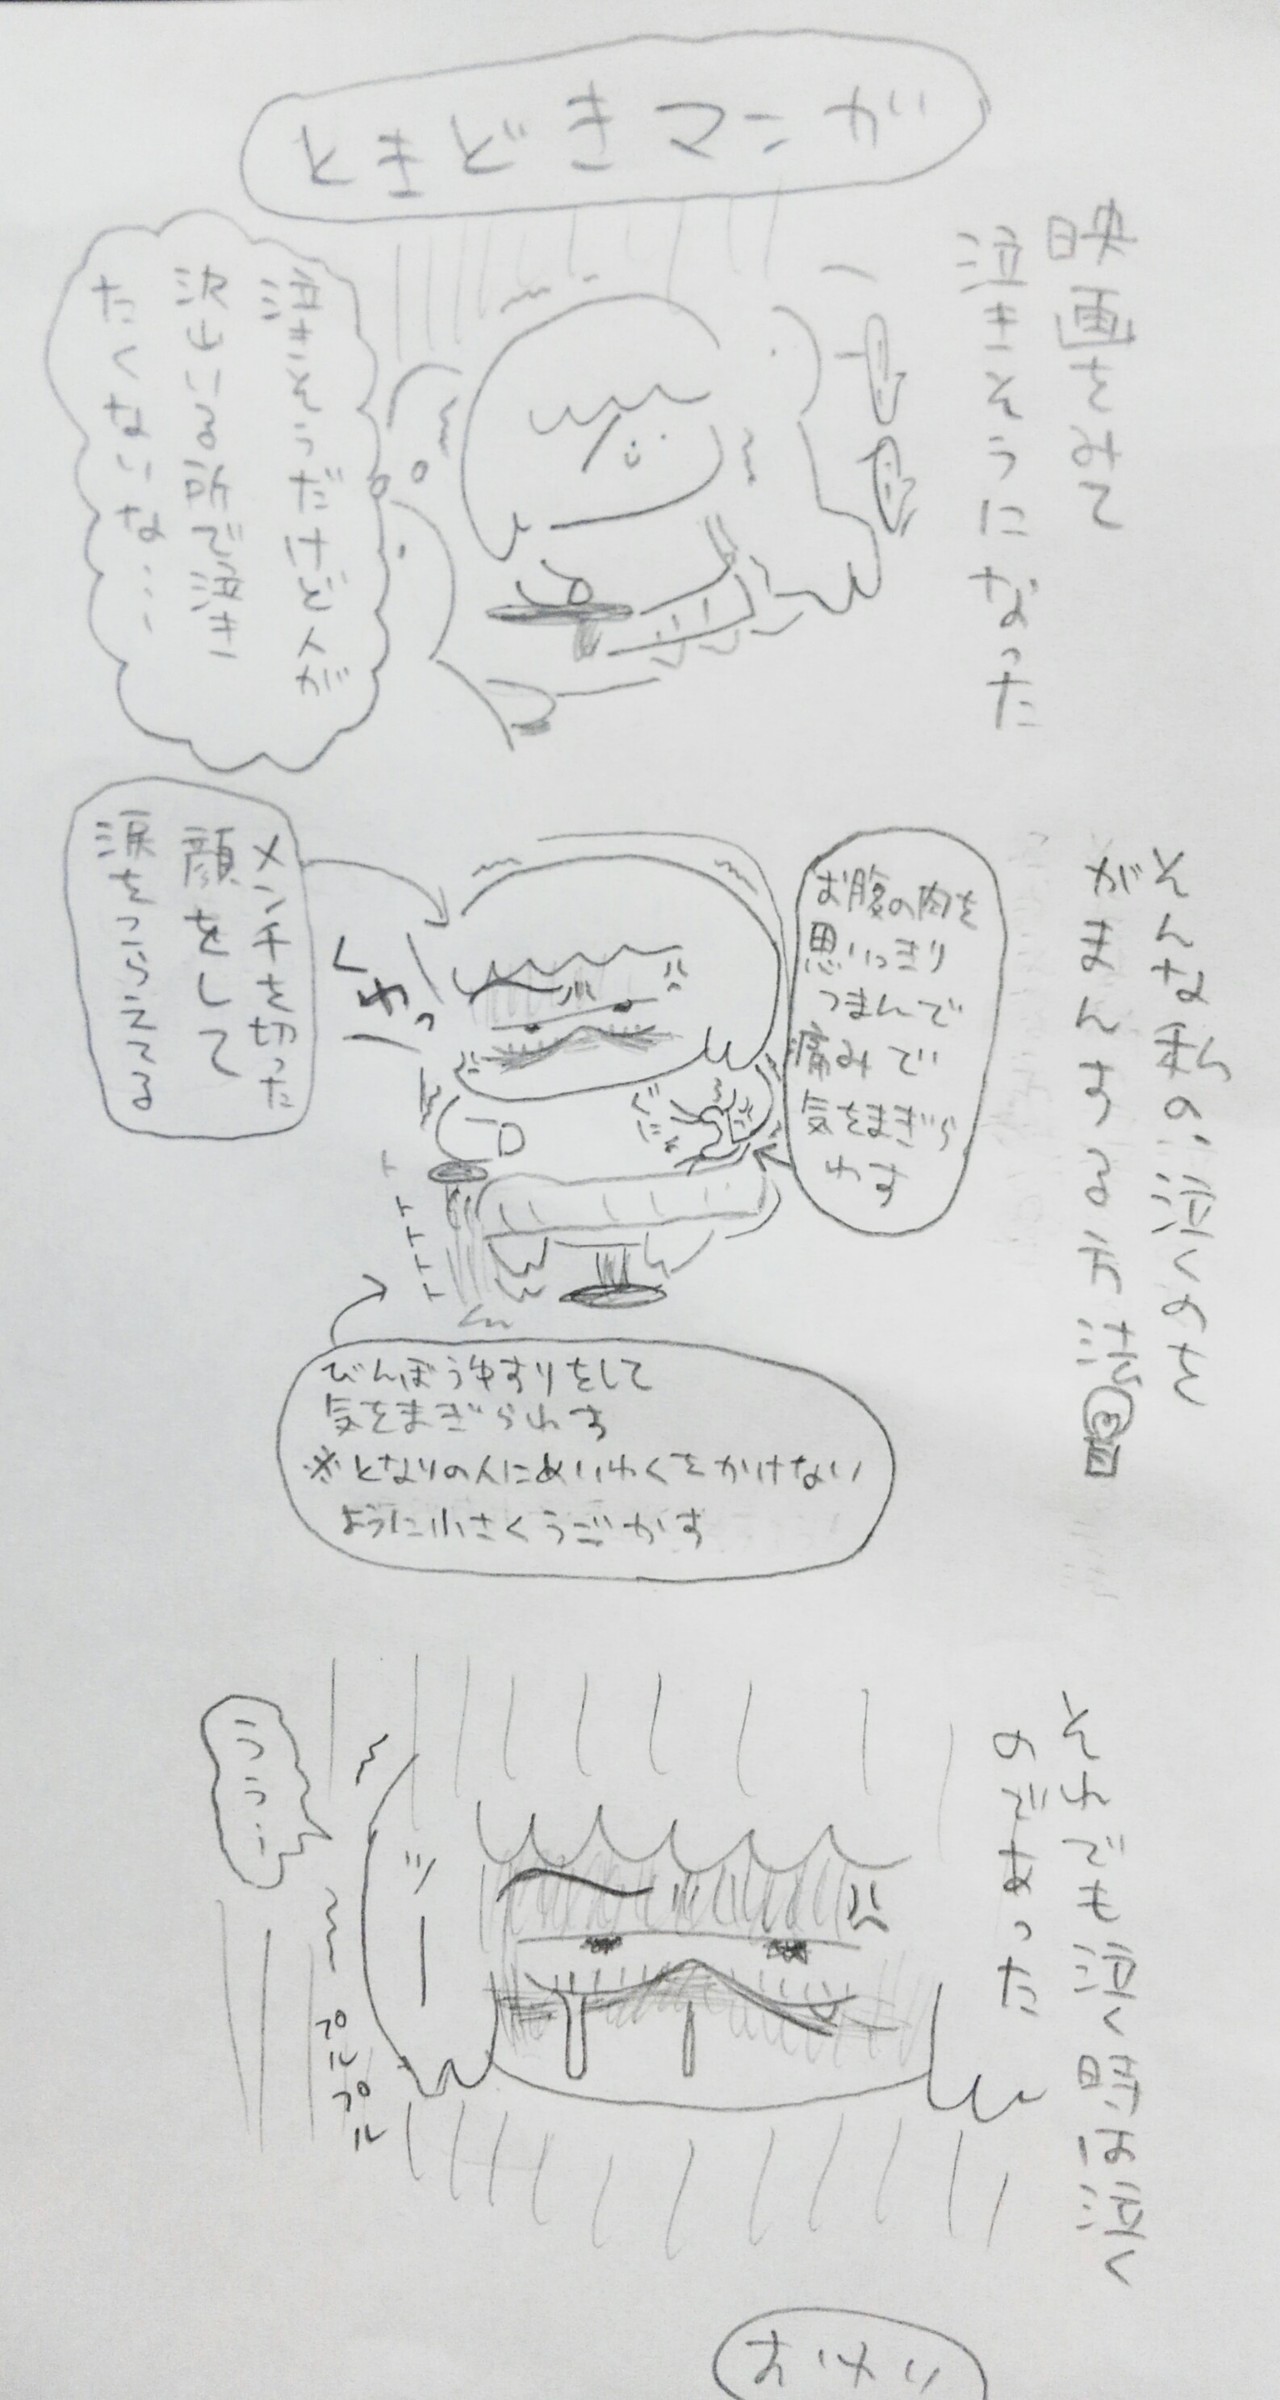 ときどきマンガ
映画をみて
泣きそうになった
泣きそうだけど人が
沢山いる所で泣き
たくないな…
そんな私の泣くのを
がまんする方法
お腹の肉を
思いっきり
つまんで
痛みで
気をまぎら
わす
ぐにゃ
メンチを切った
顔をして
涙をこらえてる
くわっ
トトトトト
びんぼうゆすりをして
気をまぎらわす
※となりの人にめいわくをかけない
ように小さくうごかす
それでも泣く時は泣く
のであった
うう…
ツー
プルプル
おわり